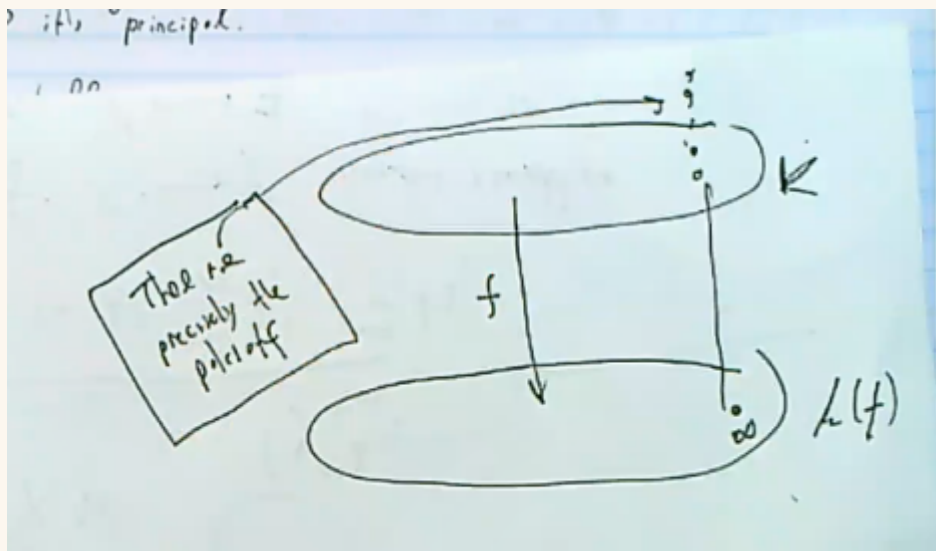 principal.
K
f
These are
precisely the
poles of f
k(f)
∞